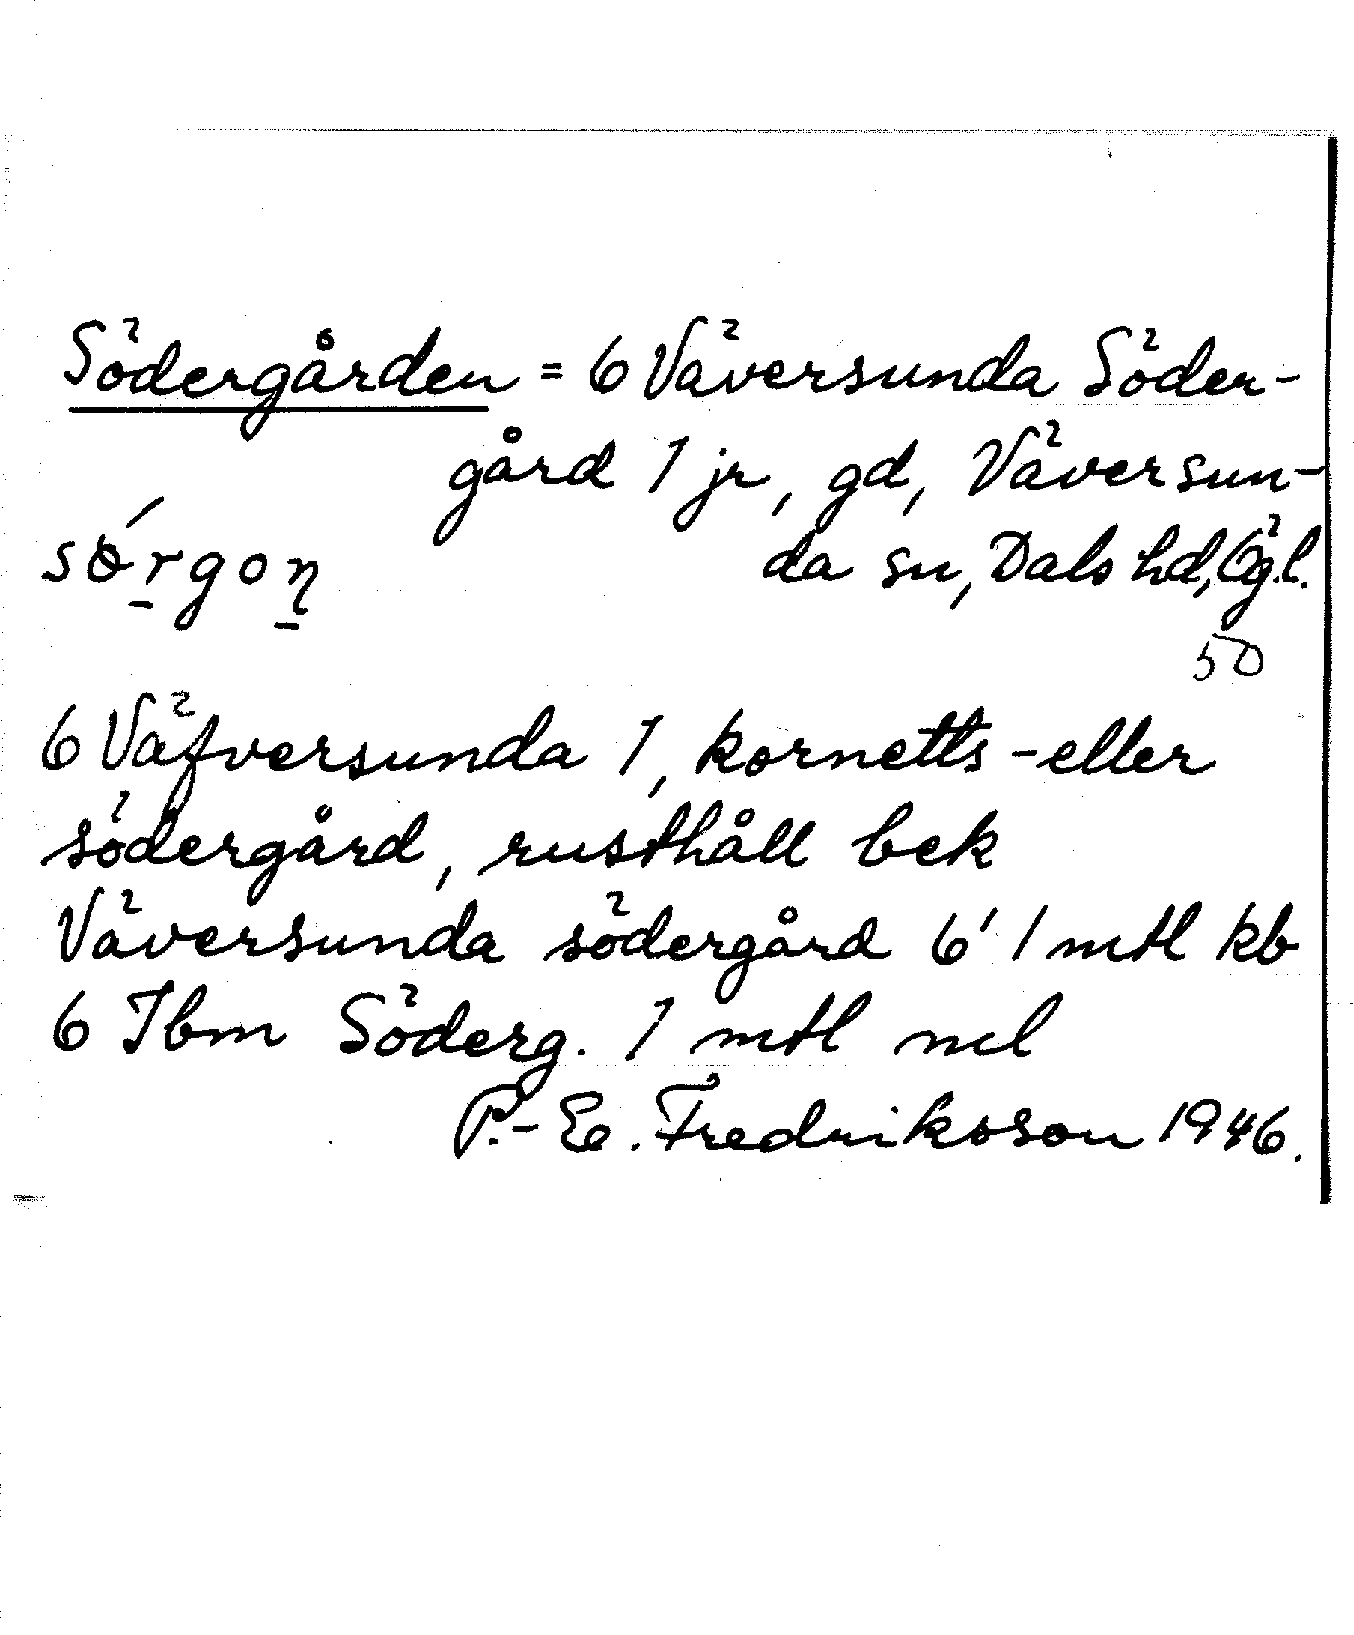 Södergården = 6 Väversunda Söder-
gård 1 jr, gd, Väversun-
da sn, Dals hd, Ög.l.
sörgon
50
6 Väfversunda 1, kornetts - eller
södergård, rusthåll bek
Väversunda södergård 6' 1 mtl kb
6 Ibm Söderg. 1 mtl ml
P.-E. Fredriksson 1946.